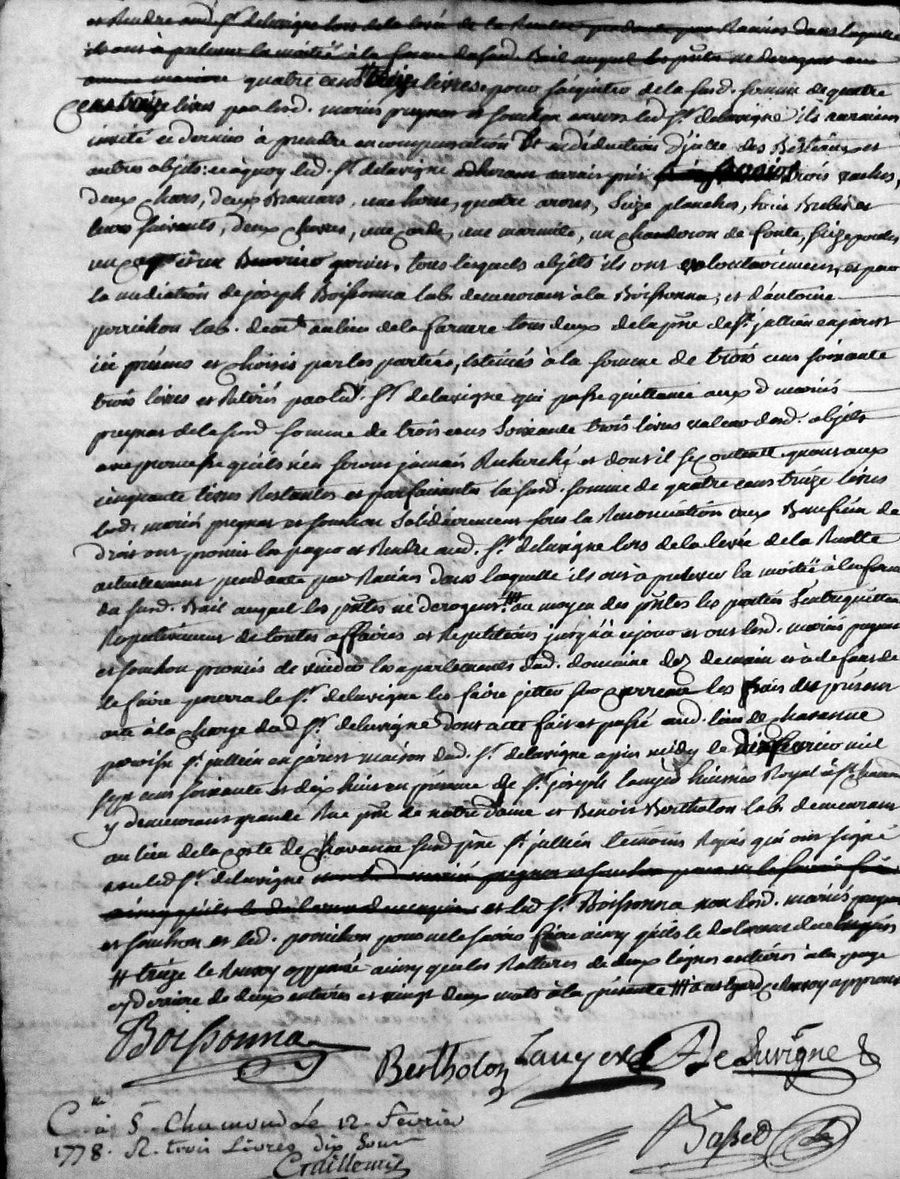 et Rendre aud. Sr. delavigne lors de la levée de la Recolte pendante par Racines dans laquelle
ils ont à prelever la moitié à la forme dusud. Bail auquel les ptes ne derogent en
aucune maniere quatre cens treize livres, pour s'aquitter de la susd. somme de quatre
cens treize livres par lesd. mariés preynat et fouchon envers led. Sr. delavigne ils auraient
invité ce dernier à prendre en compensation et en déduction d'icelle des Bestiaux et
autres objets; à quoy led. Sr. delavigne adherant aurait pris trois vaches,
deux chars, deux Brancars, une herse, quatre araires, Seize planches, huit Brebis et
leurs suivants, deux chevres, une corde, une marmite, un chauderon de fonte, Six poules
un coq et un grenier. tous lesquels objets ils ont volontairement, et par
la mediation de joseph Boissonna lab. demeurant à la Boissonna, et d'antoine
perrichon lab. demt. au lieu de la farnere tous deux de la psse de St. jullien en jarest
ici présens et choisis par les parties, estimés à la somme de trois cens soixante
trois livres et Retirés par led. Sr. delavigne qui passe quittance auxd. mariés
preynat de la susd. somme de trois cens soixante trois livres valeur desd. objets
avec promesse qu'ils n'en seront jamais Recherché et dont il se contente quant aux
cinquante livres Restantes et parfaisantes la susd. somme de quatre cens treize livres
lesd. mariés preynat et fouchon solidairement sous la Renonciation aux Benefices de
droit ont promis les payer et Rendre aud. Sr. delavigne lors de la levée de la Recolte
actuelement pendante par Racines dans laquelle ils ont à prelever la moitié à la forme
du susd. Bail auquel les ptes ne derogent. au moyen des ptes les parties s'entrequittent
Respectivement de toutes affaires et Repetitions jusqu'à ce jour et ont lesd. mariés preynat
et fouchon promis de vuider les apartements dud. domaine dez demain et à defaut de
le faire pourra le Sr. delavigne les faire jetter sur carreau les frais du présent
acte à la charge dud. Sr. delavigne dont acte fait et passé aud. lieu de chavanne
paroisse St. jullien en jarest maison dud. Sr. delavigne après midy le dix fevrier mil
sept cens soixante et dix huit en présence de Sr. joseph Lanyer huissier Royal à St. chamond
y demeurant grande Rue psse de notre dame et Benoit Bertholon lab. demeurant
au lieu de la coste de chavanne susd. psse St. jullien temoins Requis qui ont signé
avec led. Sr. delavigne et lesd. mariés preynat et fouchon pour ne le savoir faire
ainsy qu'ils le declarent de ce enquis et led. Sr. Boissonna non lesd. mariés preynat
et fouchon et led. perrichon pour ne le savoir faire ainsy qu'ils le declarent de ce enquis
# treize le Renvoy approuvé ainsy que les Ratures de deux lignes entieres à la page
cy derriere de deux entieres et vingt deux mots à la présente à cet egard Renvoy approuvé
Boissonna
Bertholon Lanyer De Lavigne
Clé à St. Chamond Le 12 Fevrier
1778. R. trois Livres dix sous
Bassed